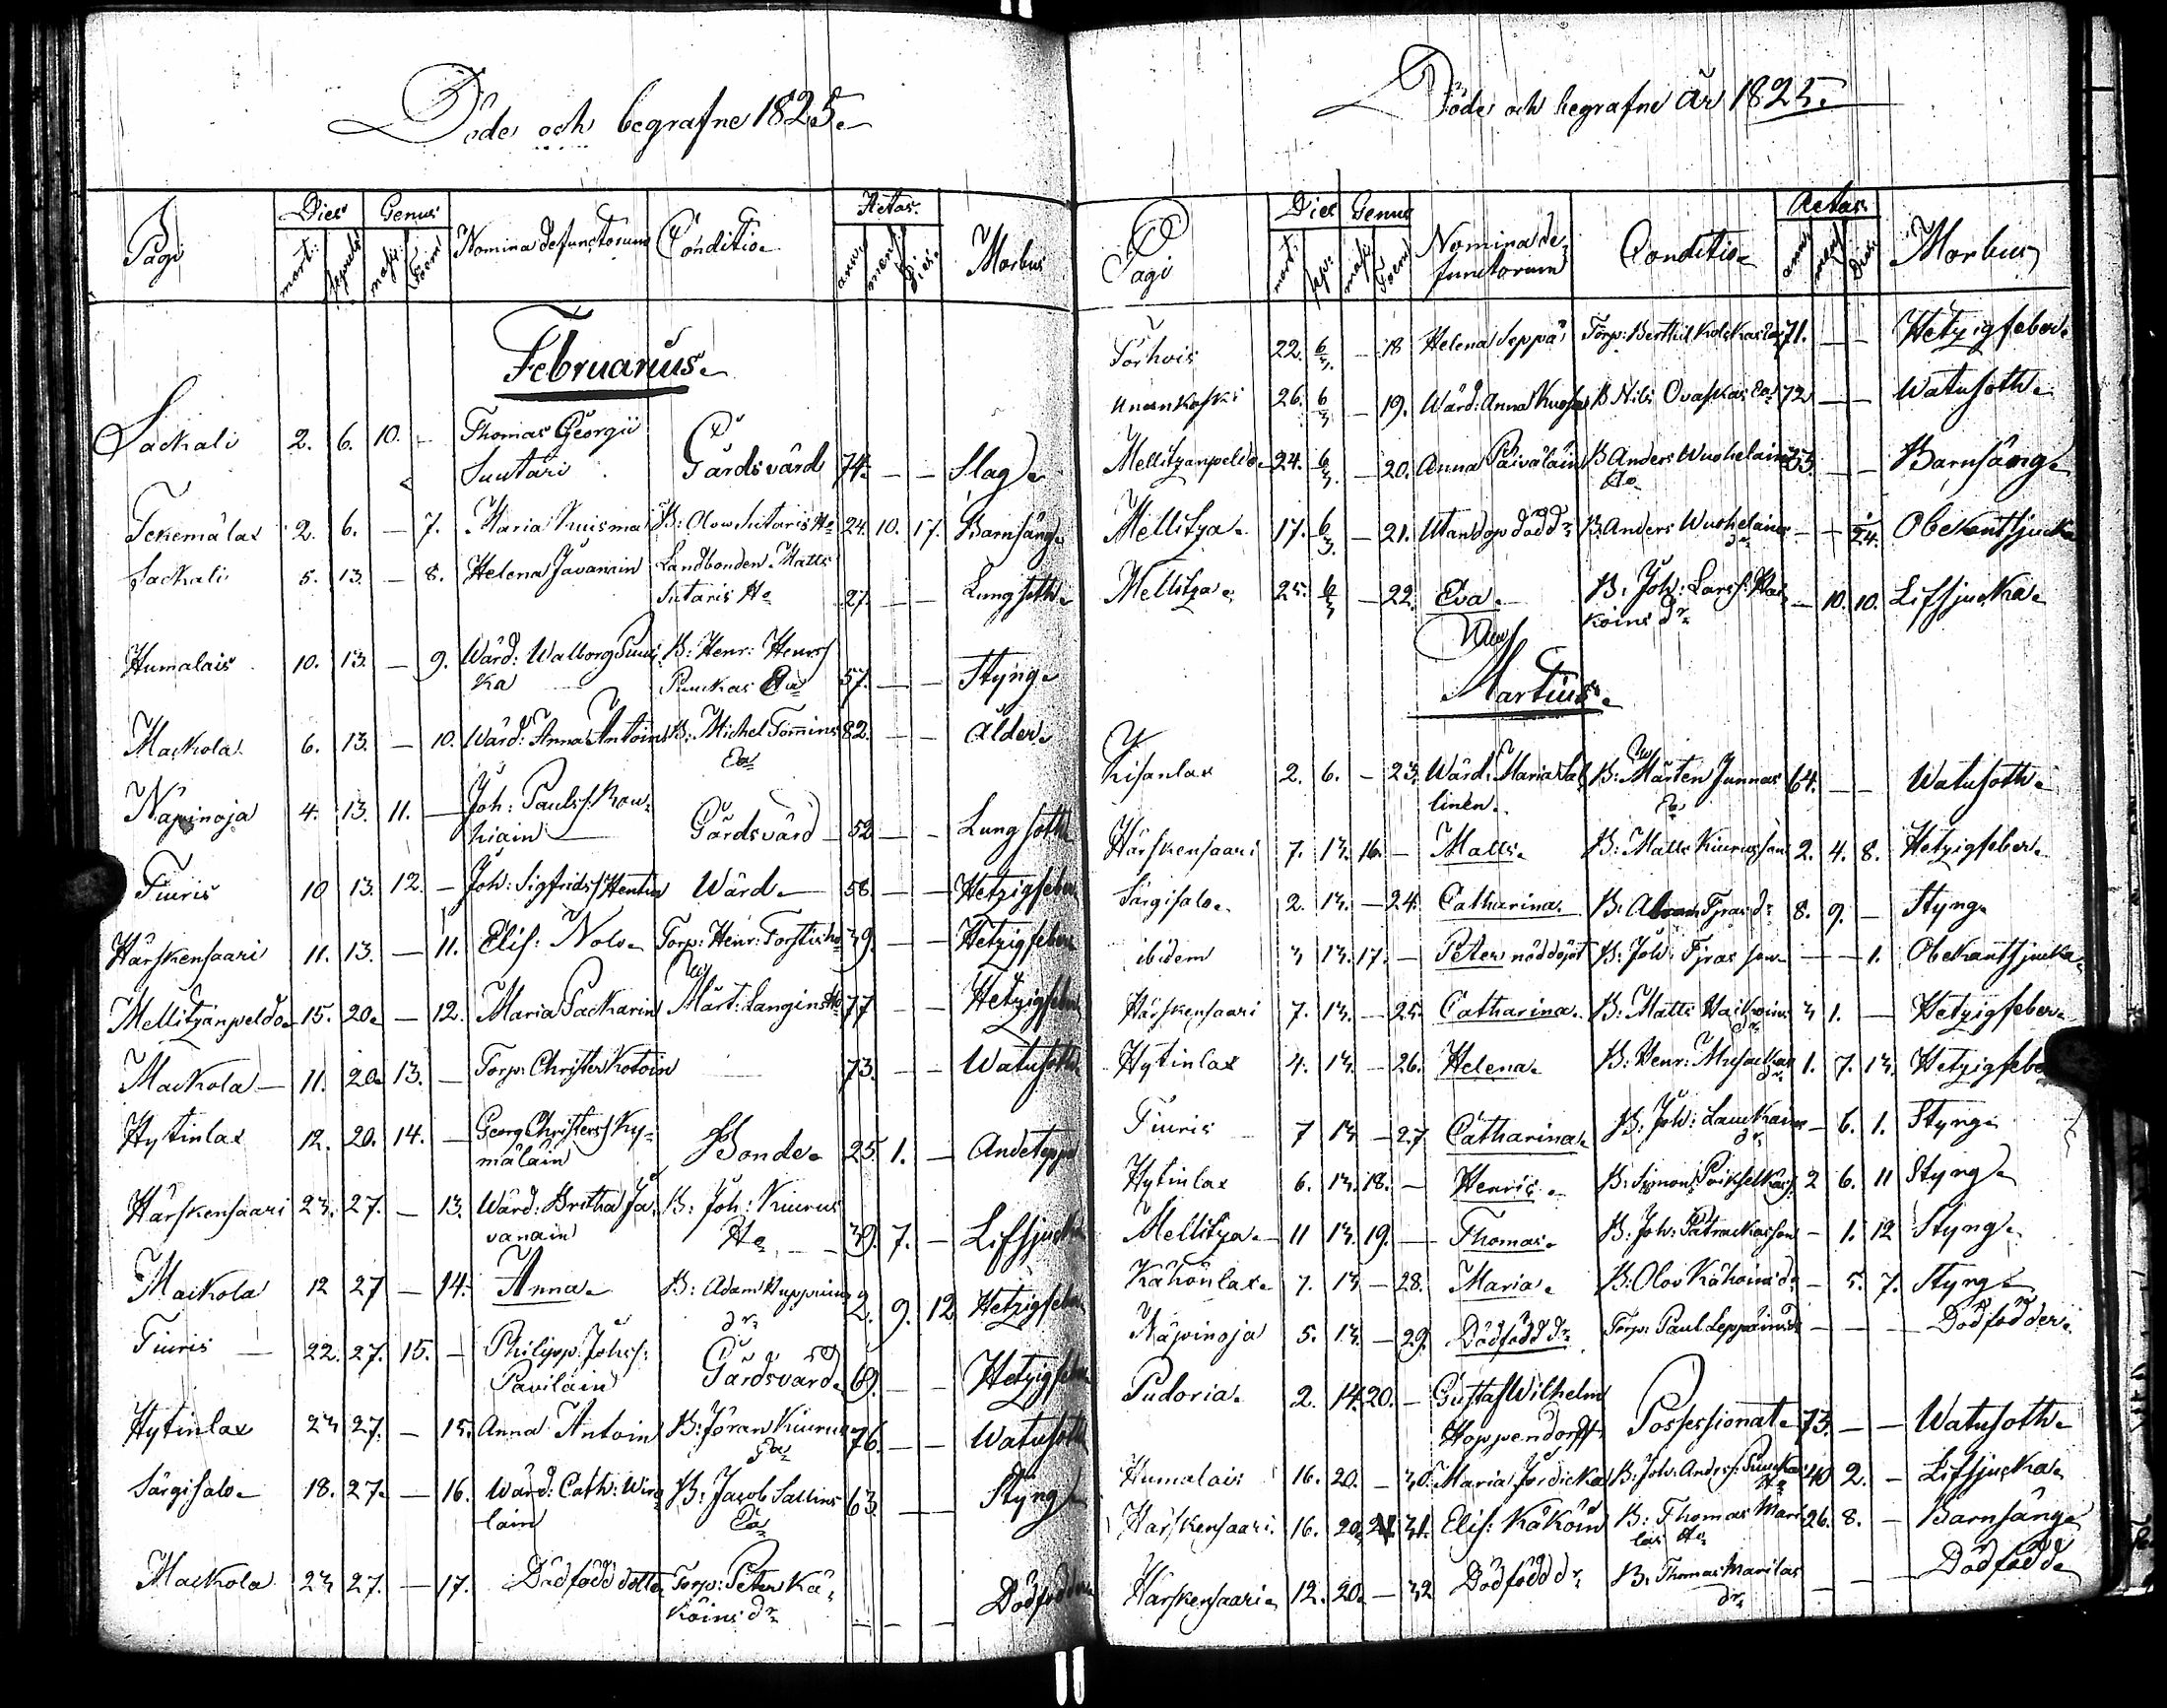 Döde och begrafne 1825.
Pagi Dies Genus Nomina defunctorum Conditio Aetas. Morbus
mort: sepult: masc: Foem: anni mens: Dies
Februarius.
Sackali 2. 6. 10. - Thomas Georgii
Suutari Gårdsvärd 74. - - Slag
Terkemälax 2. 6. - 7. Maria Kuisma B: Olow Sutaris H 24. 10. 17. Barnsäng
Sackali 5. 13. - 8. Helena Javanain Landbonden Matts
Sutaris H 27. - - Lungsoth
Humalais 10. 13. - 9. Wärd: Walborg Puuc B: Henr: Henrs
ka Puuckas Ea 57. - - Styng
Mackola 6. 13. - 10. Wärd: Anna Antoins B: Michel Tommins 82. - - ålder
Ea
Näpinoja 4. 13. 11. - Joh: Pauls: Kou
kiain Gårdsvärd 52 - - Lungsoth
Tiuris 10 13. 12. - Joh: Sigfrids: Hentu Wärd 58. - - Hetzigfeber
Härskensaari 11. 13. - 11. Elis: Nolo Torp: Henr: Torstis 39. - - Hetzigfeber
Mellitzänpeldo 15. 20. - 12. Maria Packarin Mårt: Langins H 77 - - Hetzigfeber
Mackola 11. 20. 13. - Torp: Christer Kotoin 73. - - Watusoth
Hytinlax 12. 20. 14. - Georg Christers: Ky
mäläin Bonde 25 1. - Andeteppa
Härskensaari 23. 27. - 13. Wärd: Britha Ja B: Joh: Kiurus
vanain H 39. 7. - Lifsjucka
Mackola 12 27 - 14. Anna B: Adam Huppuins 2. 9. 12 Hetzigfeber
dr
Tiuris 22. 27. 15. - Philipp Johs:
Paviläin Gårdsvärd 69. - - Hetzigfeber
Hytinlax 23 27. - 15. Anna Antoin B: Jöran Kiurus 76. - - Watusoth
Ea
Särgisalo 18. 27. - 16. Wärd: Cath: Wiro B: Jacob Sallins 63. - - Styng
lain Ea
Mackola 23 27. - 17. Dödfödd dotter Torp: Peter Kä
köins dr - - - Dödfödder
Döde och begrafne år 1825.
Pagi Dies Genus Nomina de Conditio Aetas Morbus
mort: sep: masc: Foem: functorum anni mens Dies
Törhöis 22. 6/3. - 18 Helena Seppä Torp: Berthil Kolckas Ea 71. - - Hetzigfeber
Unnunkoski 26. 6/3 - 19. Wärd: Anna B Nils Ovaskas Ea 72 - - Watusoth
Mellitzänpeldo 24. 6/3. - 20. Anna Päiväläin B Anders Wuohelains 33. - - Barnsäng
H
Mellitza 17. 6/3. - 21. Utan dop död dr B Anders Wuohelains - - 1/24. Obekant sjucka
dr
Mellitza 25. 6/3 - 22. Eva B: Joh: Lars: Kä - 10. 10. Lifsjucka
köins dr
Martius.
Kisanlax 2. 6. - 23. Wärd: Maria Sal B: Mårten Junnas 64. - - Watusoth
linen Ea
Härskensaari 7. 13. 16. - Matts B: Matts Kiurus son 2. 4. 8. Hetzigfeber
Särgisalo 2. 13. - 24. Catharina B: Abram Tjras dr 8. 9. - Styng
ibidem 3 13. 17. - Peter nöddöpt B: Joh: Tjras son - - 1. Obekant sjucka
Härskensaari 7. 13. - 25. Catharina B: Matts Häckoins 3 1. - Hetzigfeber
dr
Hytinlax 4. 13. - 26. Helena B: Henr: Musackas 1. 7. 13. Hetzigfeber
dr
Tiuris 7 13 - 27 Catharina B: Joh: Lauckains - 6. 1. Styng
dr
Hytinlax 6. 13. 18. - Henric B: Simon Poikselkäs 2 6. 11 Styng
Mellitza 11 13. 19. - Thomas B: Joh: Patrackas son - 1. 12 Styng
Kähönlax 7. 13 - 28. Maria B: Olov Kähöins dr - 5. 7. Styng
Näpinoja 5. 13. - 29. Dödfödd dr Torp: Paul Leppäins dr - - - Dödfödder
Pudoria 2. 14. 20. - Gustaf Wilhelm
Hoppendorff Possessionat 73. - - Watusoth
Humalais 16. 20. - 30. Maria Jordicka B: Joh: Anders: Puuckas 40 2. - Lifsjucka
H
Härskensaari 16. 20. 21 31. Elis: Käköin B: Thomas Mari 26. 8. - Barnsäng
las H
Härskensaari 12. 20. - 32 Dödfödd dr B: Thomas Marilas - - - Dödfödd
dr